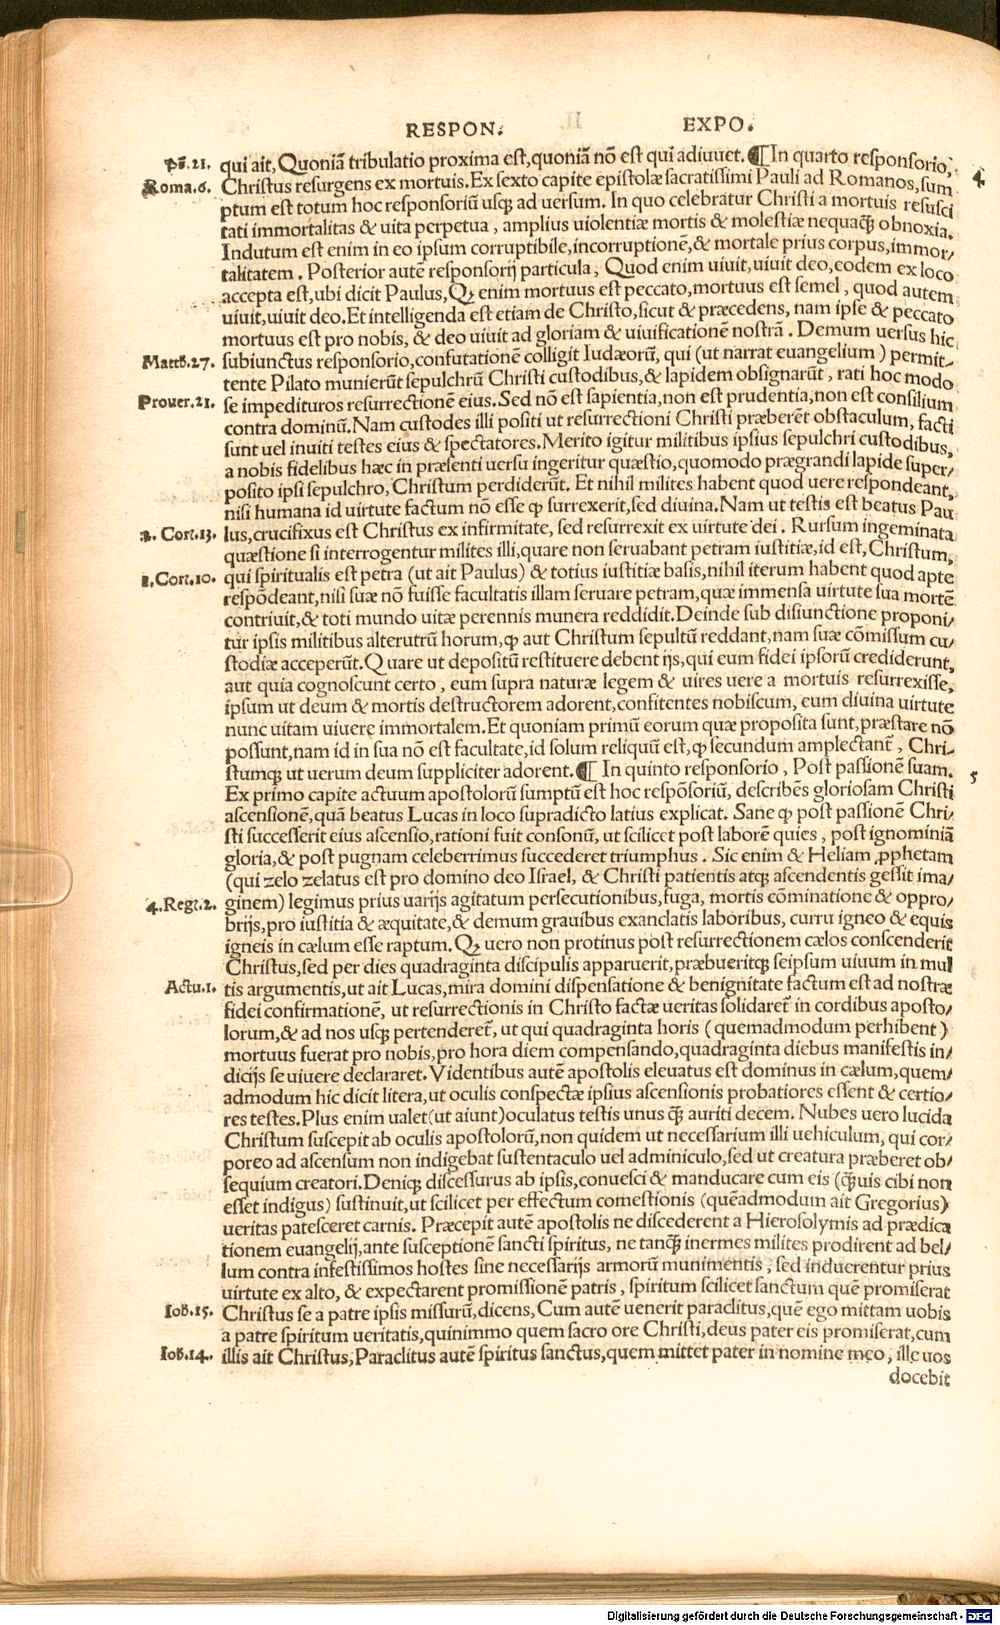 RESPON. EXPO.
Pſ.21. qui ait, Quoniã tribulatio proxima eſt,quoniã nõ eſt qui adiuuet. ¶ In quarto reſponſorio, 4
Roma.6. Chriſtus reſurgens ex mortuis.Ex ſexto capite epiſtolæ ſacratiſſimi Pauli ad Romanos,ſum
ptum eſt totum hoc reſponſoriũ uſq; ad uerſum. In quo celebratur Chriſti a mortuis reſuſci
tati immortalitas & uita perpetua , amplius uiolentiæ mortis & moleſtiæ nequaq̃ obnoxia.
Indutum eſt enim in eo ipſum corruptibile,incorruptionẽ,& mortale prius corpus,immor/
talitatem . Poſterior autẽ reſponſorij particula , Quod enim uiuit,uiuit deo,eodem ex loco
accepta eſt,ubi dicit Paulus,Qꝫ enim mortuus eſt peccato,mortuus eſt ſemel , quod autem
uiuit,uiuit deo.Et intelligenda eſt etiam de Chriſto,ſicut & præcedens, nam ipſe & peccato
mortuus eſt pro nobis, & deo uiuit ad gloriam & uiuificationẽ noſtrã . Demum uerſus hic
Matth.27. ſubiunctus reſponſorio,confutationẽ colligit Iudæorũ, qui (ut narrat euangelium ) permit/
tente Pilato munierũt ſepulchrũ Chriſti cuſtodibus,& lapidem obſignarũt , rati hoc modo
Prouer.21. ſe impedituros reſurrectionẽ eius. Sed nõ eſt ſapientia,non eſt prudentia,non eſt conſilium
contra dominũ. Nam cuſtodes illi poſiti ut reſurrectioni Chriſti præberẽt obſtaculum, facti
ſunt uel inuiti teſtes eius & ſpectatores.Merito igitur militibus ipſius ſepulchri cuſtodibus,
a nobis fidelibus hæc in præſenti uerſu ingeritur quæſtio,quomodo prægrandi lapide ſuper/
poſito ipſi ſepulchro, Chriſtum perdiderũt. Et nihil milites habent quod uere reſpondeant,
niſi humana id uirtute factum nõ eſſe ꝙ ſurrexerit,ſed diuina. Nam ut teſtis eſt beatus Pau
2. Cor.13. lus,crucifixus eſt Chriſtus ex infirmitate, ſed reſurrexit ex uirtute dei . Rurſum ingeminata
quæſtione ſi interrogentur milites illi,quare non ſeruabant petram iuſtitiæ,id eſt,Chriſtum,
1.Cor.10. qui ſpiritualis eſt petra (ut ait Paulus) & totius iuſtitiæ baſis,nihil iterum habent quod apte
reſpõdeant,niſi ſuæ nõ fuiſſe facultatis illam ſeruare petram,quæ immenſa uirtute ſua mortẽ
contriuit,& toti mundo uitæ perennis munera reddidit. Deinde ſub diſiunctione proponi/
tur ipſis militibus alterutrũ horum,ꝙ aut Chriſtum ſepultũ reddant,nam ſuæ cõmiſſum cu/
ſtodiæ acceperũt.Quare ut depoſitũ reſtituere debent ijs,qui eum fidei ipſorũ crediderunt,
aut quia cognoſcunt certo , eum ſupra naturæ legem & uires uere a mortuis reſurrexiſſe,
ipſum ut deum & mortis deſtructorem adorent,confitentes nobiſcum, eum diuina uirtute
nunc uitam uiuere immortalem. Et quoniam primũ eorum quæ propoſita ſunt,præſtare nõ
poſſunt,nam id in ſua nõ eſt facultate,id ſolum reliquũ eſt,ꝙ ſecundum amplectant̃ , Chri/
ſtumq; ut uerum deum ſuppliciter adorent. ¶ In quinto reſponſorio , Poſt paſſionẽ ſuam. 5
Ex primo capite actuum apoſtolorũ ſumptũ eſt hoc reſpõſoriũ, deſcribẽs glorioſam Chriſti
aſcenſionẽ,quã beatus Lucas in loco ſupradicto latius explicat. Sane ꝙ poſt paſſionẽ Chri/
ſti ſucceſſerit eius aſcenſio,rationi fuit conſonũ, ut ſcilicet poſt laborẽ quies , poſt ignominiã
gloria,& poſt pugnam celeberrimus ſuccederet triumphus . Sic enim & Heliam ꝓphetam
(qui zelo zelatus eſt pro domino deo Iſrael, & Chriſti patientis atq; aſcendentis geſſit ima/
4.Reg.2. ginem) legimus prius uarijs agitatum perſecutionibus,fuga, mortis cõminatione & oppro/
brijs,pro iuſtitia & æquitate,& demum grauibus exanclatis laboribus, curru igneo & equis
igneis in cælum eſſe raptum. Qꝫ uero non protinus poſt reſurrectionem cælos conſcenderit
Chriſtus,ſed per dies quadraginta diſcipulis apparuerit,præbueritq; ſeipſum uiuum in mul
Actu.1. tis argumentis,ut ait Lucas,mira domini diſpenſatione & benignitate factum eſt ad noſtræ
fidei confirmationẽ, ut reſurrectionis in Chriſto factæ ueritas ſolidaret̃ in cordibus apoſto/
lorum,& ad nos uſq; pertenderet̃, ut qui quadraginta horis ( quemadmodum perhibent )
mortuus fuerat pro nobis,pro hora diem compenſando,quadraginta diebus manifeſtis in/
dicijs ſe uiuere declararet. Videntibus autẽ apoſtolis eleuatus eſt dominus in cælum,quem/
admodum hic dicit litera,ut oculis conſpectæ ipſius aſcenſionis probatiores eſſent & certio/
res teſtes. Plus enim ualet(ut aiunt)oculatus teſtis unus q̃ auriti decem. Nubes uero lucida
Chriſtum ſuſcepit ab oculis apoſtolorũ,non quidem ut neceſſarium illi uehiculum, qui cor/
poreo ad aſcenſum non indigebat ſuſtentaculo uel adminiculo,ſed ut creatura præberet ob/
ſequium creatori. Deniq; diſceſſurus ab ipſis,conueſci & manducare cum eis (q̃uis cibi non
eſſet indigus) ſuſtinuit,ut ſcilicet per effectum comeſtionis (quẽadmodum ait Gregorius)
ueritas pateſceret carnis. Præcepit autẽ apoſtolis ne diſcederent a Hieroſolymis ad prædica
tionem euangelij,ante ſuſceptionẽ ſancti ſpiritus, ne tanq̃ inermes milites prodirent ad bel/
lum contra infeſtiſſimos hoſtes ſine neceſſarijs armorũ munimentis , ſed induerentur prius
uirtute ex alto, & expectarent promiſſionẽ patris , ſpiritum ſcilicet ſanctum quẽ promiſerat
Ioh.15. Chriſtus ſe a patre ipſis miſſurũ,dicens, Cum autẽ uenerit paraclitus,quẽ ego mittam uobis
a patre ſpiritum ueritatis,quinimmo quem ſacro ore Chriſti,deus pater eis promiſerat,cum
Ioh.14. illis ait Chriſtus, Paraclitus autẽ ſpiritus ſanctus,quem mittet pater in nomine meo, ille uos
docebit
Digitalisierung gefördert durch die Deutsche Forschungsgemeinschaft - DFG